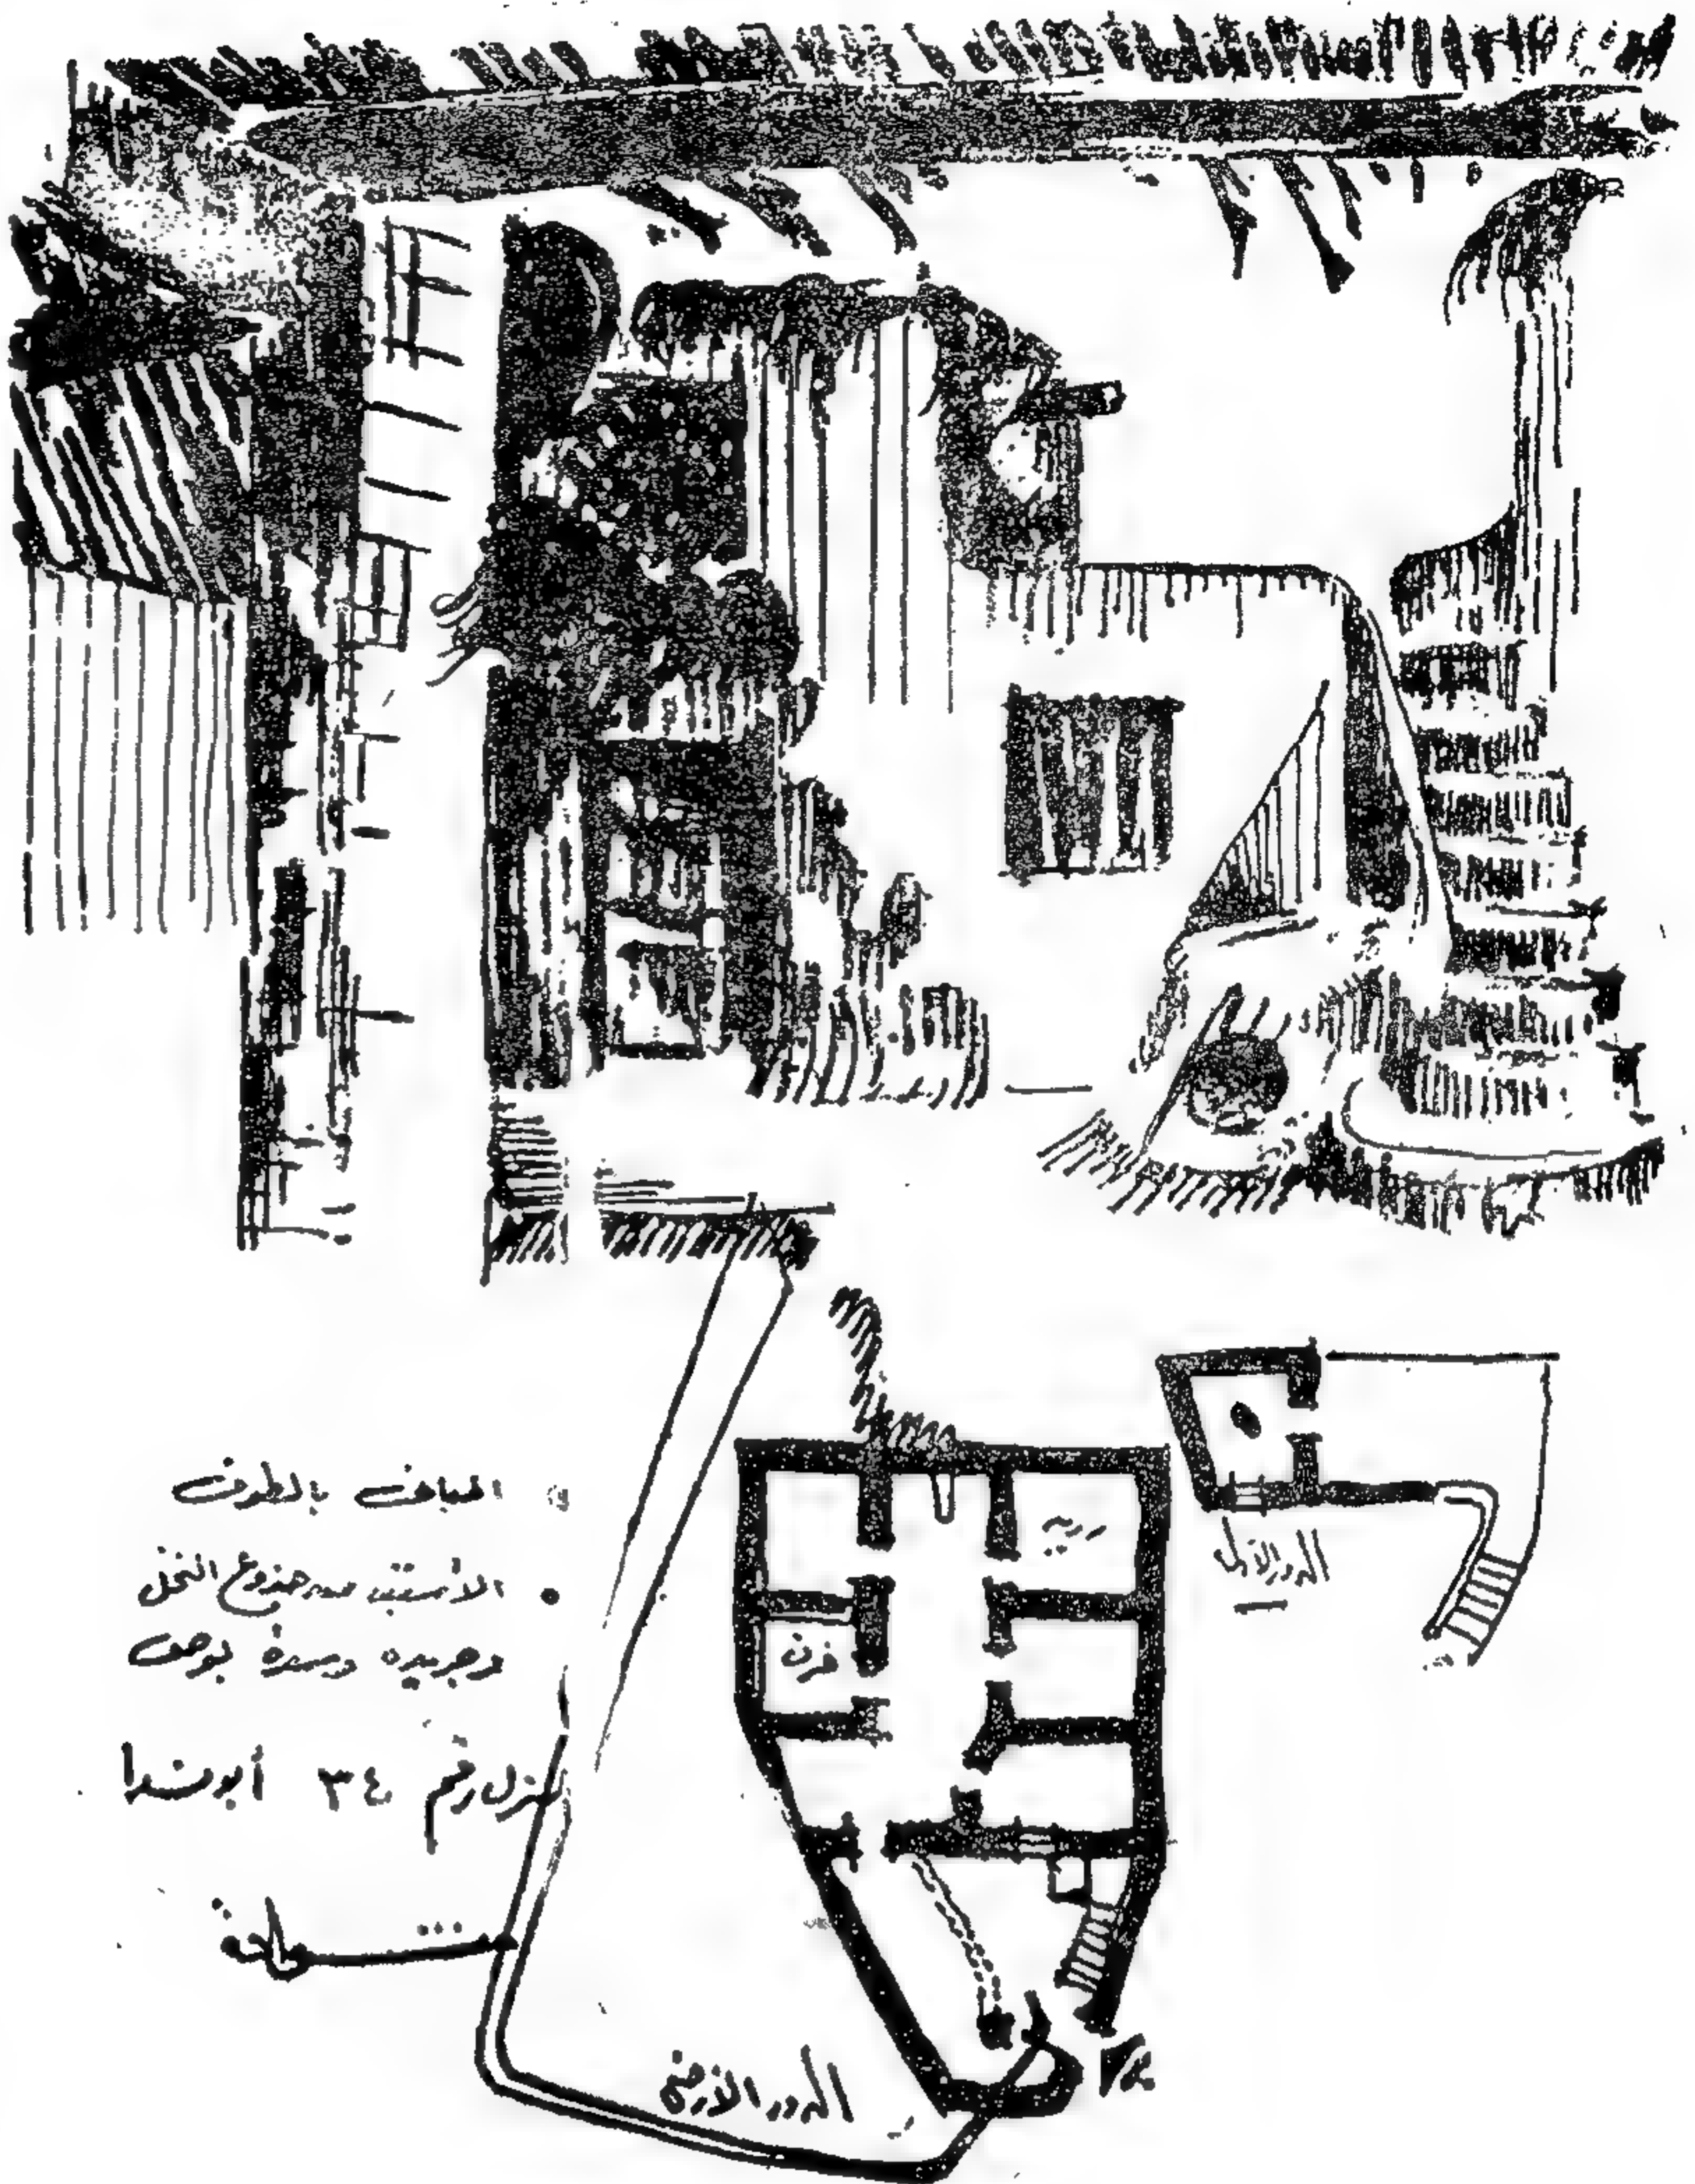 المباني بالطوف
• الأسقف من جذوع النخل
وجريده وسدة بوص
منزل رقم ٣٤ أبو شدا
فرن
الدور الأول
الدور الأرضى